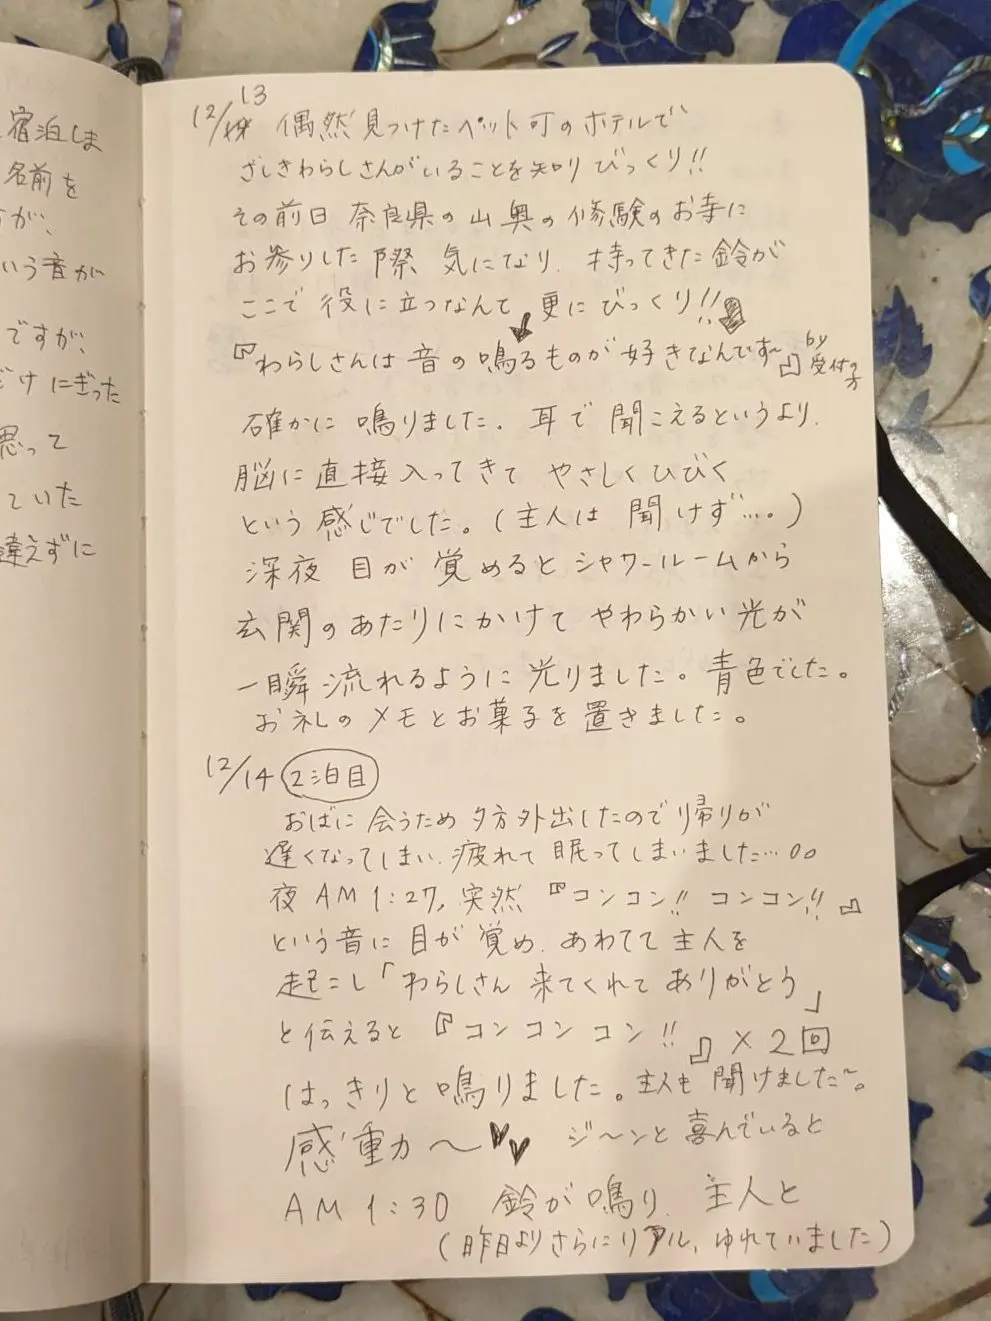 宿泊しま
名前を
が、
いう音が
ですが、
だけにぎった
思って
ていた
違えずに
12/13 偶然見つけたペット可のホテルで
ざしきわらしさんがいることを知りびっくり!!
その前日 奈良県の山奥の修験のお寺に
お参りした際 気になり、持ってきた鈴が
ここで役に立つなんて、更にびっくり!!
『わらしさんは音の鳴るものが好きなんです〜』by受付の方
確かに鳴りました。耳で聞こえるというより、
脳に直接入ってきて やさしくひびく
という感じでした。(主人は聞けず…。)
深夜 目が覚めるとシャワールームから
玄関のあたりにかけてやわらかい光が
一瞬流れるように光りました。青色でした。
お礼のメモとお菓子を置きました。
12/14 2泊目
おばに会うため夕方外出したので帰りが
遅くなってしまい、疲れて眠ってしまいました…。。
夜AM1:27, 突然『コンコン!! コンコン!!』
という音に目が覚め、あわてて主人を
起こし「わらしさん来てくれてありがとう」
と伝えると『コンコンコン!!』×2回
はっきりと鳴りました。主人も聞けました〜。
感動〜♥♥ ジ〜ンと喜んでいると
AM1:30 鈴が鳴り、主人と
(昨日よりさらにリアル、ゆれていました)